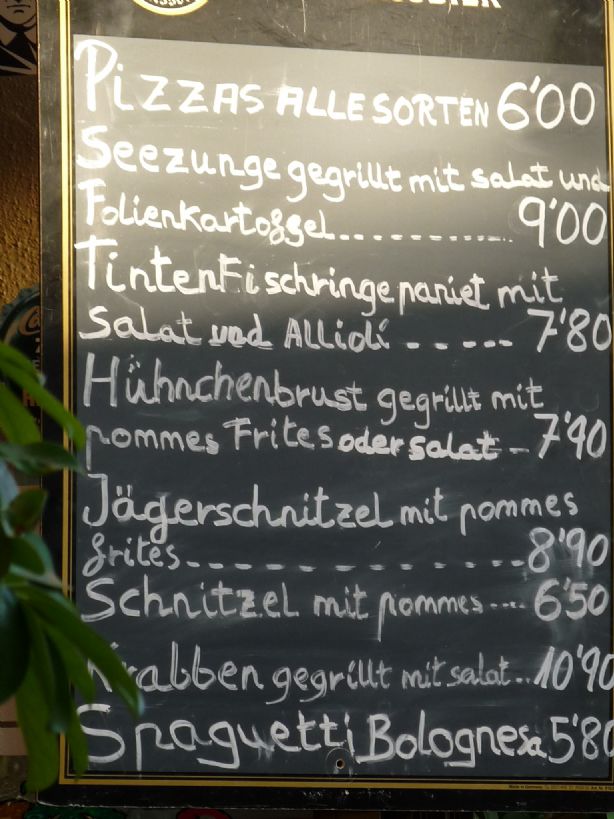 PIZZAS ALLE SORTEN 6'00
Seezunge gegrillt mit salat und
Folienkartoffel............. 9'00
TintenFischringe paniet mit
Salat und ALLioli ...... 7'80
Hühnchenbrust gegrillt mit
pommes Frites oder salat - 7'90
Jägerschnitzel mit pommes
frites................ 8'90
Schnitzel mit pommes.... 6'50
Krabben gegrillt mit salat.. 10'90
Spaguetti Bolognesa 5'80